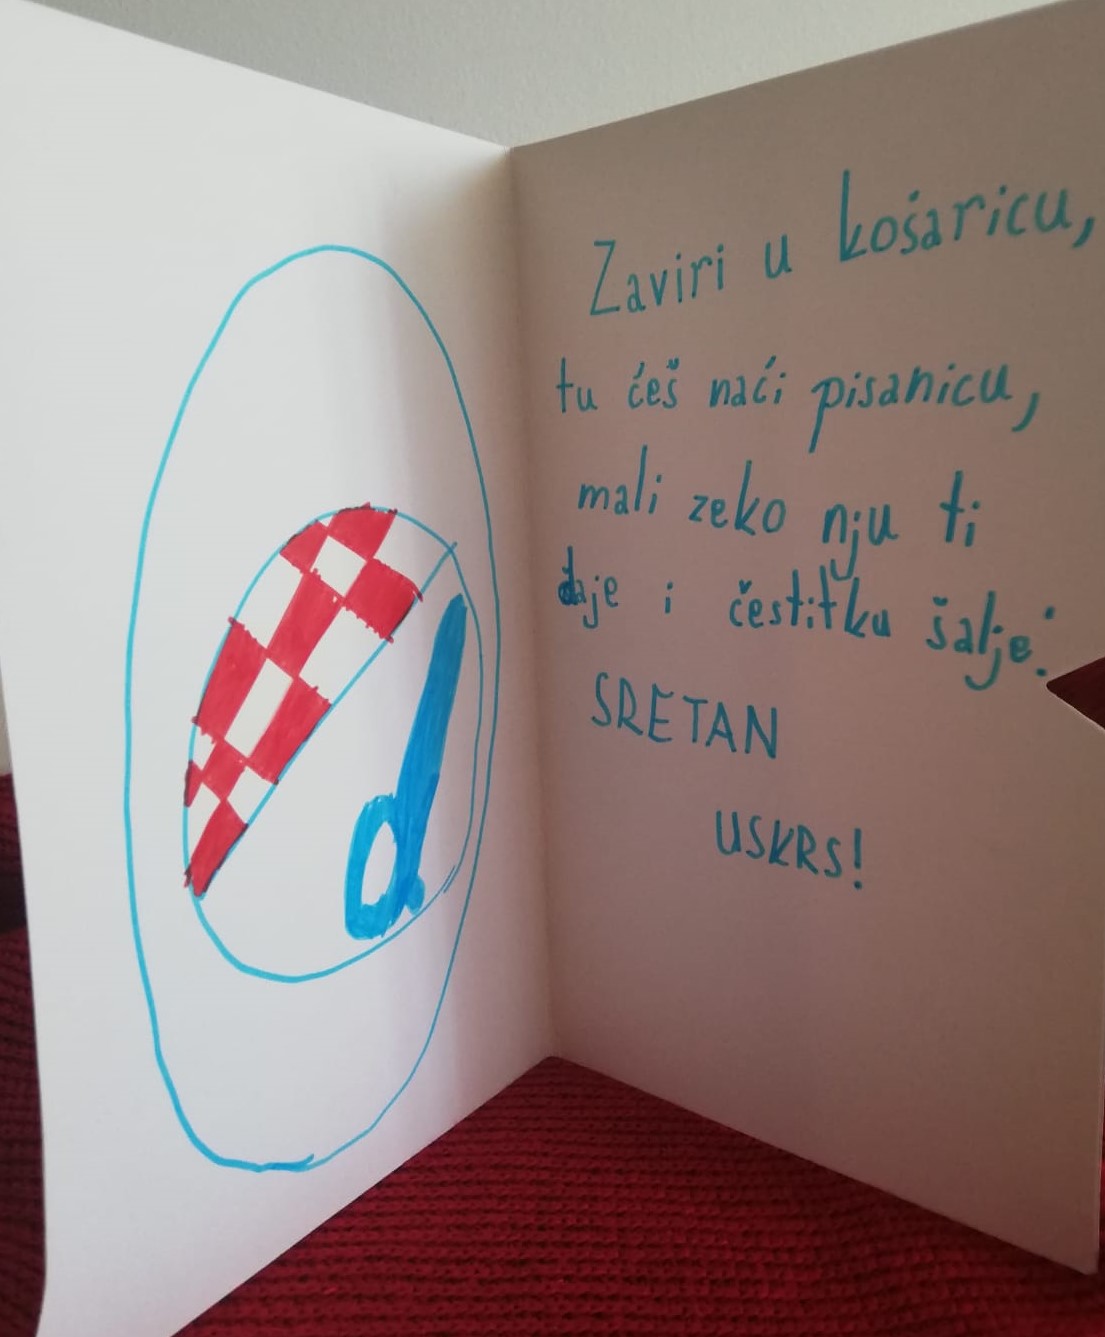 Zaviri u košaricu,
tu ćeš naći pisanicu,
mali zeko nju ti
daje i čestitku šalje:
SRETAN
USKRS!